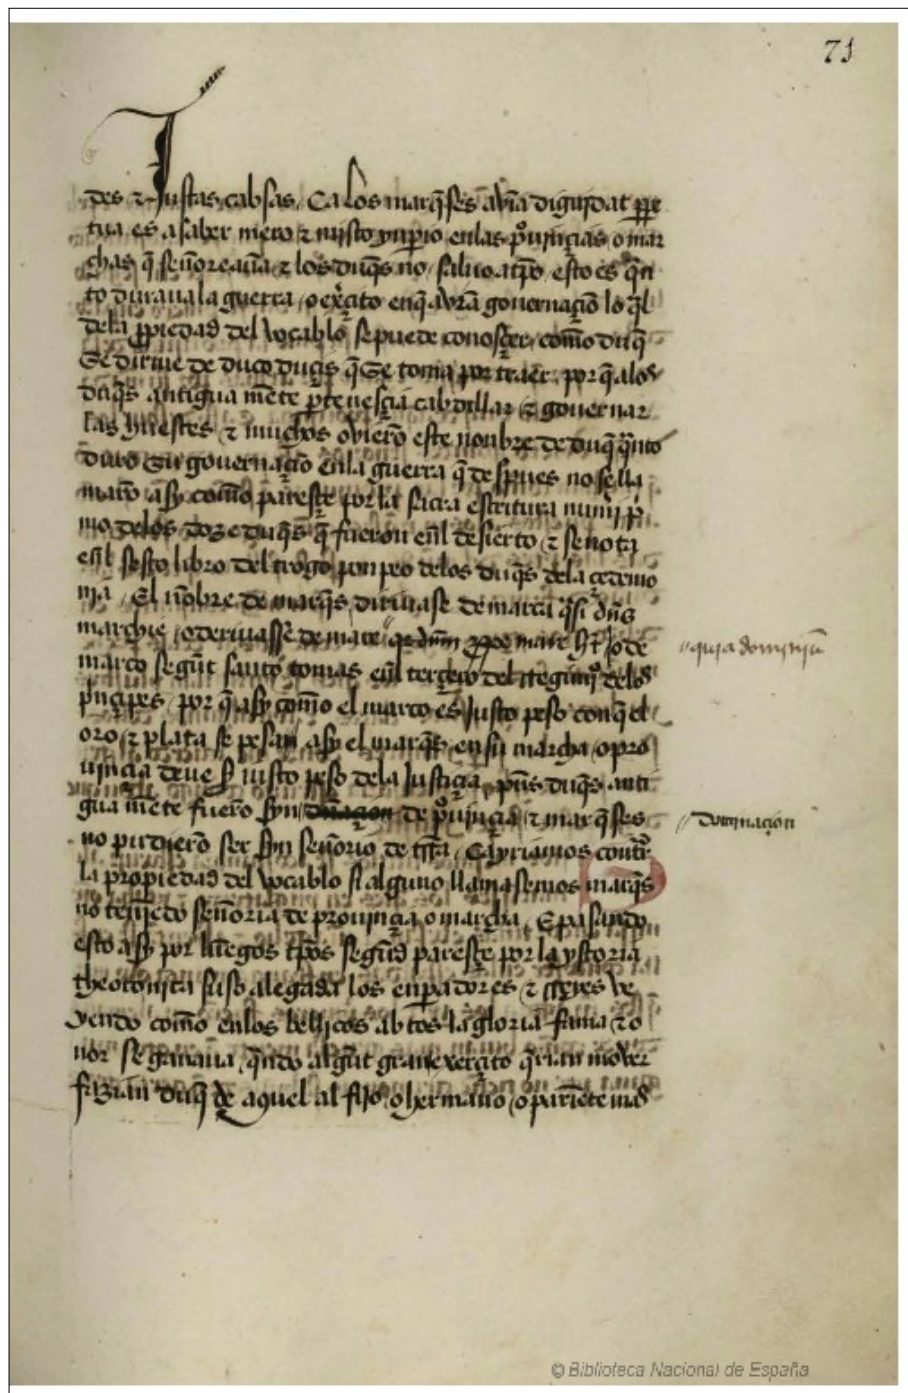 71
des & Justas cabsas. Ca los marq̃ses avia dignidat ꝑpe
tua es a saber mero & misto ynperio enlas ꝓuinçias o mar
chas q̃ señoreaua & los duq̃s no saluo a tp̃o esto es q̃n
to duraua la guerra o exerçito enq̃ avia governaçiõ lo q̃l
dela ꝓpiedad del vocablo se puede conosçer, como duq̃
Se diriue de duco duçis q̃ Se toma por traer. por q̃ alos
duq̃s antigua mẽte ꝑtenesçia cabdillar & governar
las huestes & muchos ovierõ este nonbre de duq̃ q̃nto
duro Su governaçiõ enla guerra q̃ despues no se lla
marõ asy como paresçe por la sacra escritura
mo delos doze duq̃s q̃ fueron enl desierto & se nota
enl sesto libro del trogo ponpeo delos duq̃s de la çedemo
nia. El nõbre de marq̃s diriuase de marca q̃si dñs
marchie, o deriuasse de mare o de
quia dominiũ
marco segũt santo tomas enl terçero del Regimiº delos
prinçipes, por q̃ asy como el marco es Justo peso conq̃ el
oro & plata se pesan asy el marq̃s en su marcha o pro
uinçia deue ser iusto peso dela Justiçia, pues duq̃s anti
gua mẽte fuerõ syn de ꝓuinçia & marq̃ses
dominaçion
no pudierõ ser syn señorio de trr̃a, E yriamos contra
la propiedad del vocablo si alguno llamasemos marq̃s
nõ teniẽdo señoria de prouinçia o marcha, E pasando
esto asy por luẽgos tp̃os segũd paresçe por la ystoria
theotonica suso alegada los enꝑadores & Reyes ve
yendo como enlos bellicos abtos la gloria fama & o
nor se ganaua, q̃ndo algũt grant exerçito q̃rian mover
fazian duq̃ de aquel al fijo, o hermano, o pariẽte mas
© Biblioteca Nacional de España